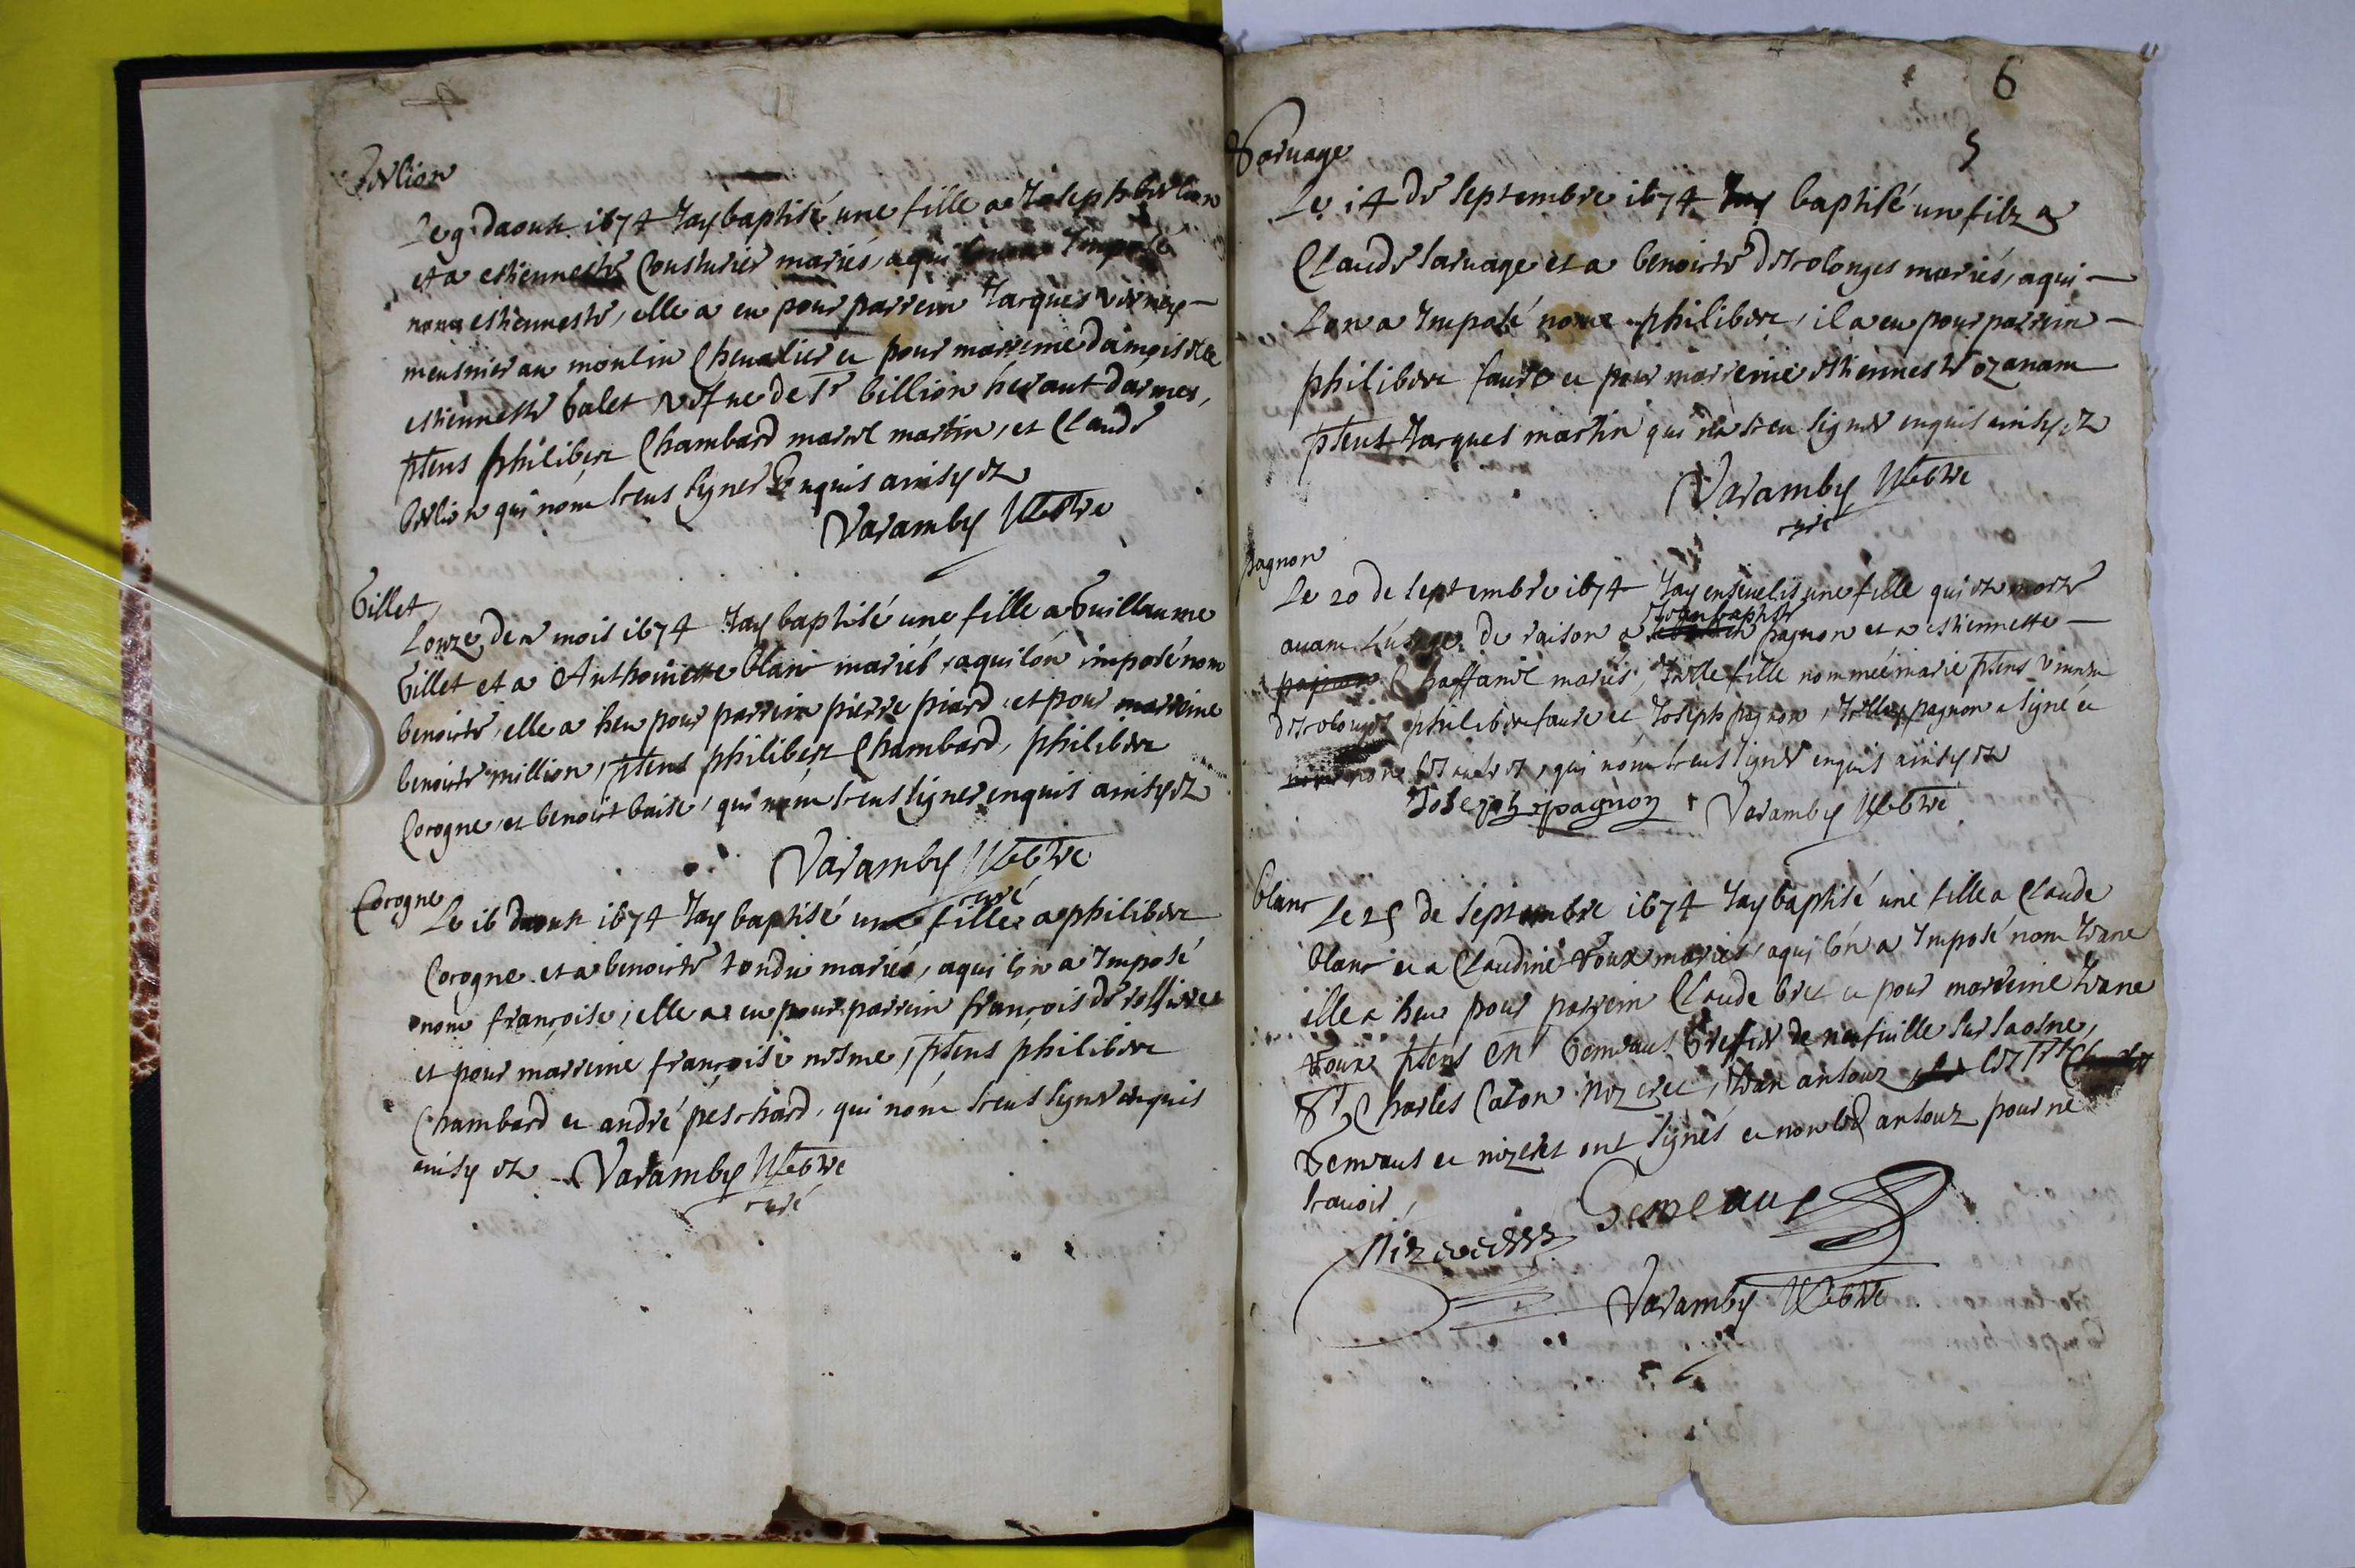 Berlion
Le 9 daoust 1674 Jay baptisé une fille a Joseph berlion
et a estiennette Cousturier mariés, a qui Imposé
nom estiennette, elle a eu pour parrein Jacques verney
meusnier au moulin Chevalier et pour marreine damoiselle
estiennette balet vefve de Sr billion heraut darmes,
pnts philibert Chambard martin, et Claude
berlion qui nont sceus signer Enquis ainsy est
Varamby
Gillet
Lonze de mois 1674 Jay baptisé une fille a Guillaume
Gillet et a Anthoinette blanc mariés, a qui lon imposé nom
benoiste, elle a heu pour parrein pierre piard, et pour marreine
benoiste million, pnts philibert Chambard, philibert
Corogne, et benoist baise, qui nont sceus signer enquis ainsy est
Varamby
curé
Corogne
Le 16 daoust 1674 Jay baptisé une fille a philibert
Corogne et a benoiste tondu mariés, a qui lon a Imposé
nom françoise, elle a eu pour parrein françois de
et pour marreine françoise nesme, pnts philibert
Chambard et andré peschard, qui nont sceus signer enquis
ainsy est Varamby
curé
6
5
Sarvage
Le 14 de septembre 1674 Jay baptisé un filz a
Claude sarvage et a benoiste descolonges mariés, a qui
Lon a Imposé nom philibert, il a eu pour parrein
philibert faure et pour marreine estiennette ozanam
pnt Jacques martin qui na sceu signer enquis ainsy est
Varamby
curé
pagnon
Le 20 de septembre 1674 Jay ensevelis une fille qui est morte
Jean baptiste
avant l'usage de raison a pagnon et a estiennette
pagnon Chaffanel mariés, fille nommée marie pnts vincent
descolonges philibert faure et Joseph pagnon, pagnon a signé et
non les autres, qui nont sceus signer enquis ainsy est
Joseph pagnon Varamby
blanc
Le 25 de septembre 1674 Jay baptisé une fille a Claude
blanc et a Claudine roux mariés, a qui lon a Imposé nom Jeane
elle a heu pour parrein Claude bret et pour marreine Jeane
roux pnts Gemeaus Greffier de neufville sur saosne,
Sr Charles Caton Nizeret, Jean ansouz
Gemeaus et nizeret ont signés et non led ansouz pour ne
scavoir,
Gemeaux
Varamby